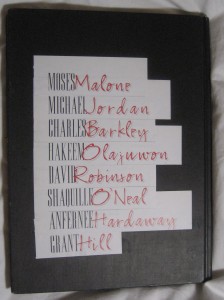 MOSES Malone
MICHAEL Jordan
CHARLES Barkley
HAKEEM Olajuwon
DAVID Robinson
SHAQUILLE O'Neal
ANFERNEE Hardaway
GRANT Hill